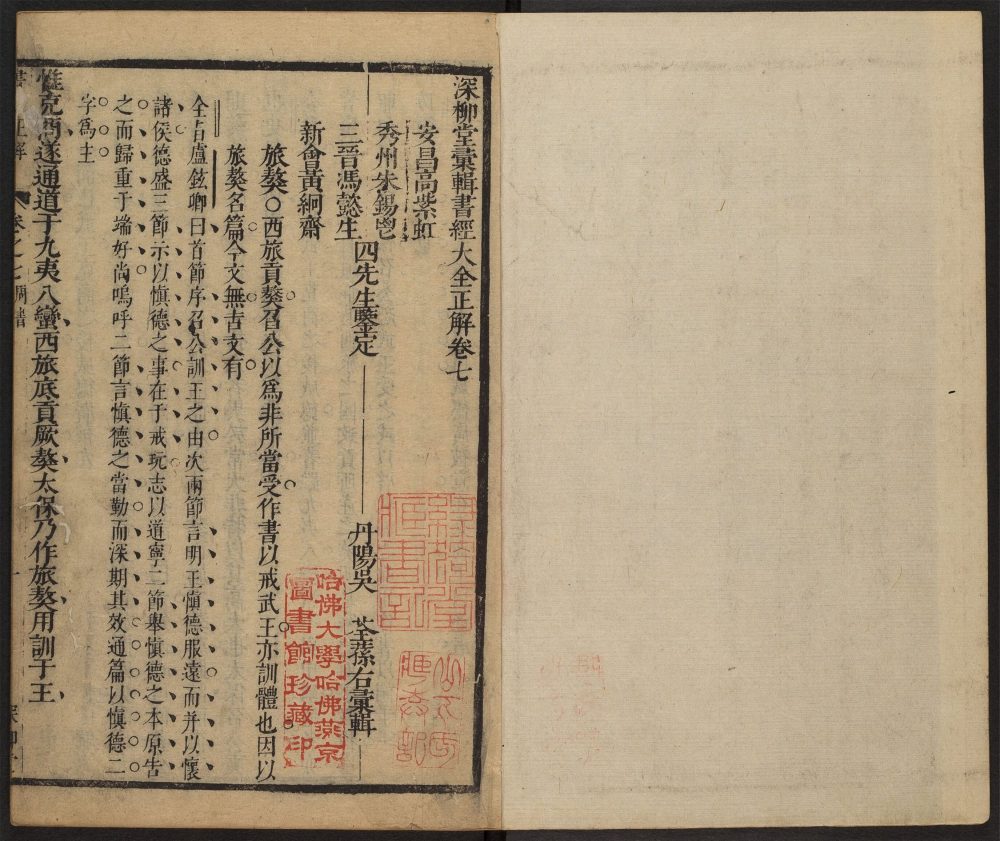 深柳堂彙輯書經大全正解卷七
安昌高紫虹
秀州朱錫鬯
三晉馮懿生
新會黃綗齋
四先生鑒定
丹陽吳 荃蓀右彙輯
旅獒○西旅貢獒召公以爲非所當受作書以戒武王亦訓體也因以
旅獒名篇今文無古文有
全旨盧鉉卿曰首節序召公訓王之由次兩節言明王愼德服遠而并以懷
諸侯德盛三節示以愼德之事在于戒玩志以道寧二節舉愼德之本原告
之而歸重于端好尚嗚呼二節言愼德之當勤而深期其效通篇以愼德二
字爲主
惟克商遂通道于九夷八蠻西旅底貢厥獒太保乃作旅獒用訓于王
書 正解 卷之七 周書 一 深柳堂
哈佛大學哈佛燕京
圖書館珍藏印